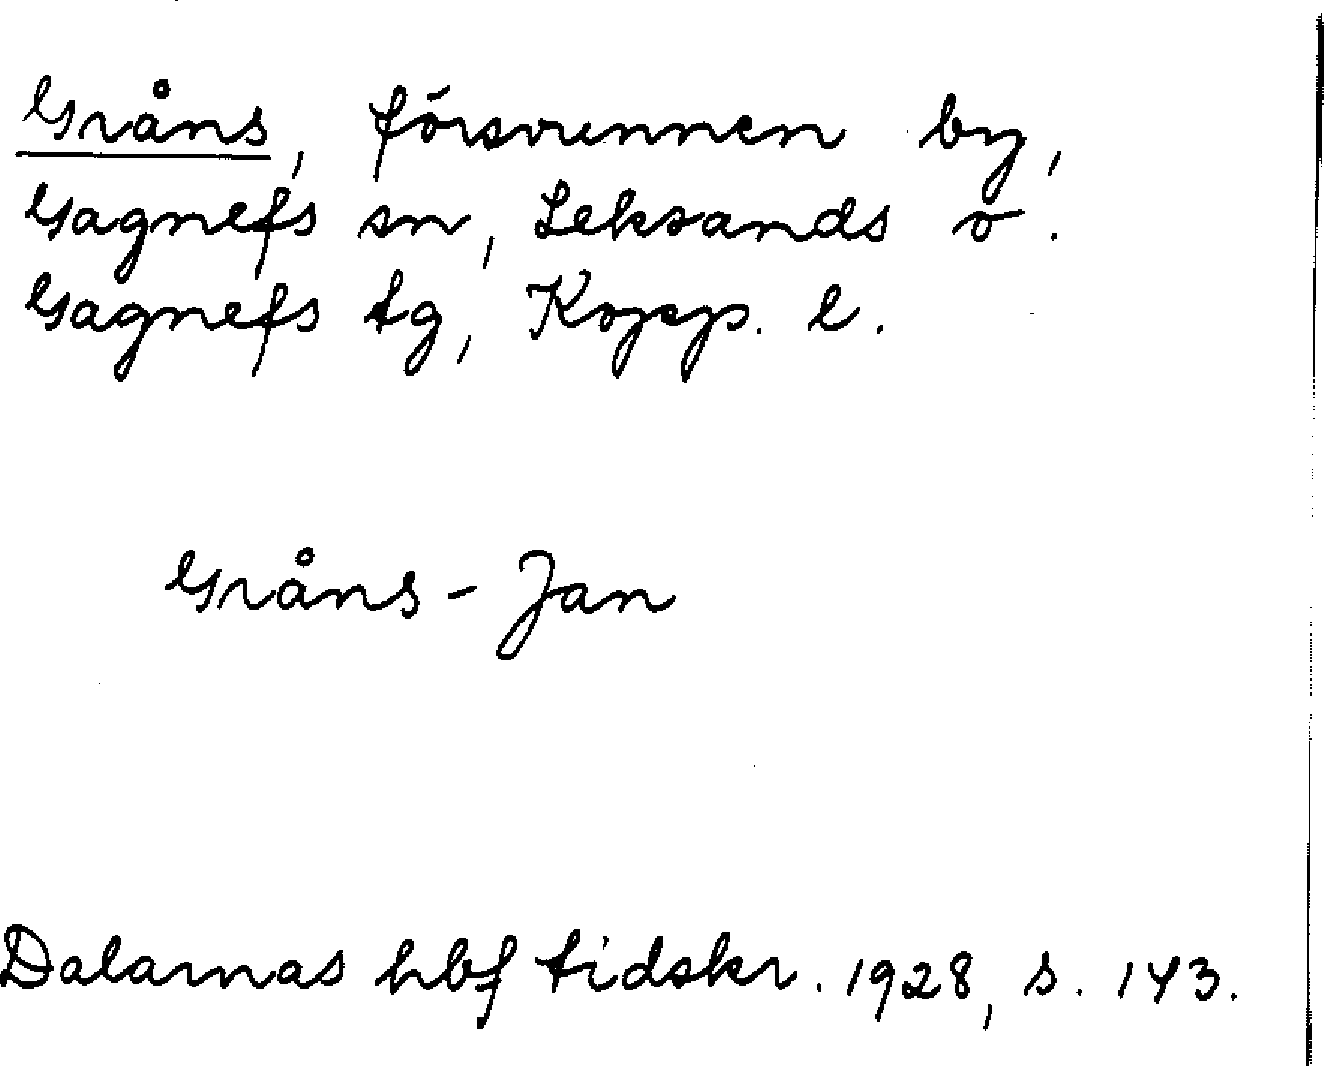 Gråns, försvunnen by,
Gagnefs sn, Leksands o.
Gagnefs tg, Kopp. l.
Gråns - Jan
Dalarnas hbf tidskr. 1928, s. 143.